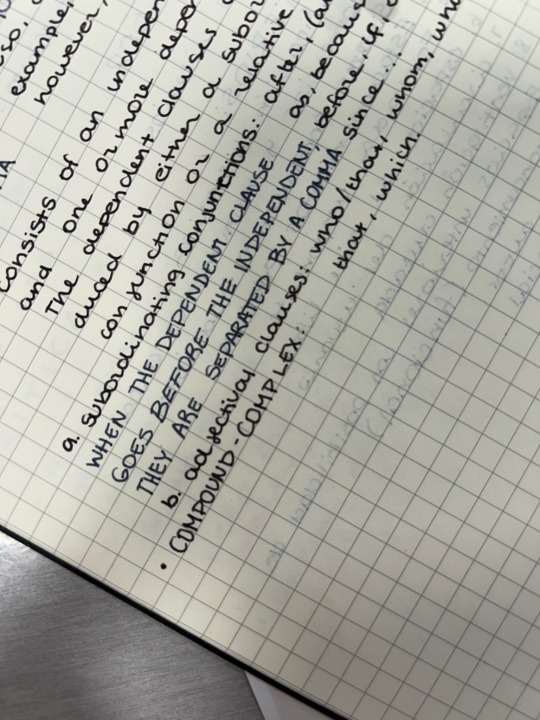 so,
example,
however,
consists of an indepen
and one or more depen
The dependent clauses
duced by either a subor
conjunction or a relative
a. subordinating conjunctions: after,
as, becaus
before, if,
since...
WHEN THE DEPENDENT CLAUSE
GOES BEFORE THE INDEPENDENT,
THEY ARE SEPARATED BY A COMMA
b. adjectival clauses: who/that, whom, who
that, which.
• COMPOUND-COMPLEX: